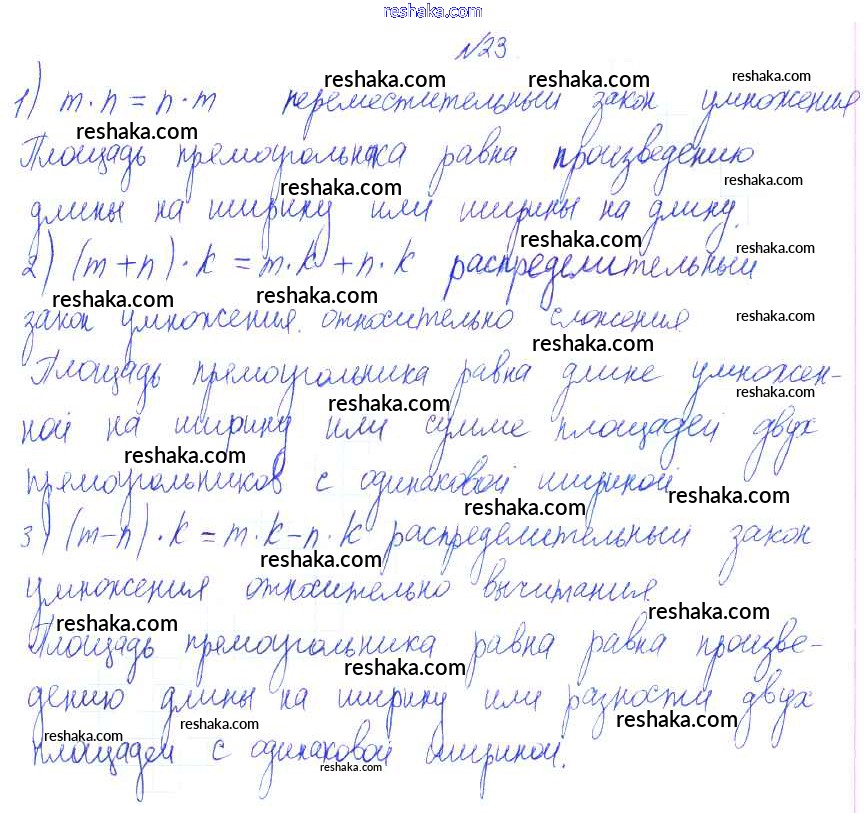 reshaka.com
№23
reshaka.com reshaka.com reshaka.com
1) m·n = n·m переместительный закон умножения
reshaka.com
Площадь прямоугольника равна произведению
reshaka.com reshaka.com
длины на ширину или ширины на длину.
reshaka.com reshaka.com
2) (m+n)·k = m·k+n·k распределительный
reshaka.com reshaka.com reshaka.com
закон умножения относительно сложения
reshaka.com
Площадь прямоугольника равна длине умножен-
reshaka.com reshaka.com
ной на ширину или сумме площадей двух
reshaka.com
прямоугольников с одинаковой шириной
reshaka.com reshaka.com
3) (m-n)·k = m·k-n·k распределительный закон
reshaka.com
умножения относительно вычитания.
reshaka.com reshaka.com
Площадь прямоугольника равна равна произве-
reshaka.com
дению длины на ширину или разности двух
reshaka.com reshaka.com
площадей с одинаковой шириной.
reshaka.com